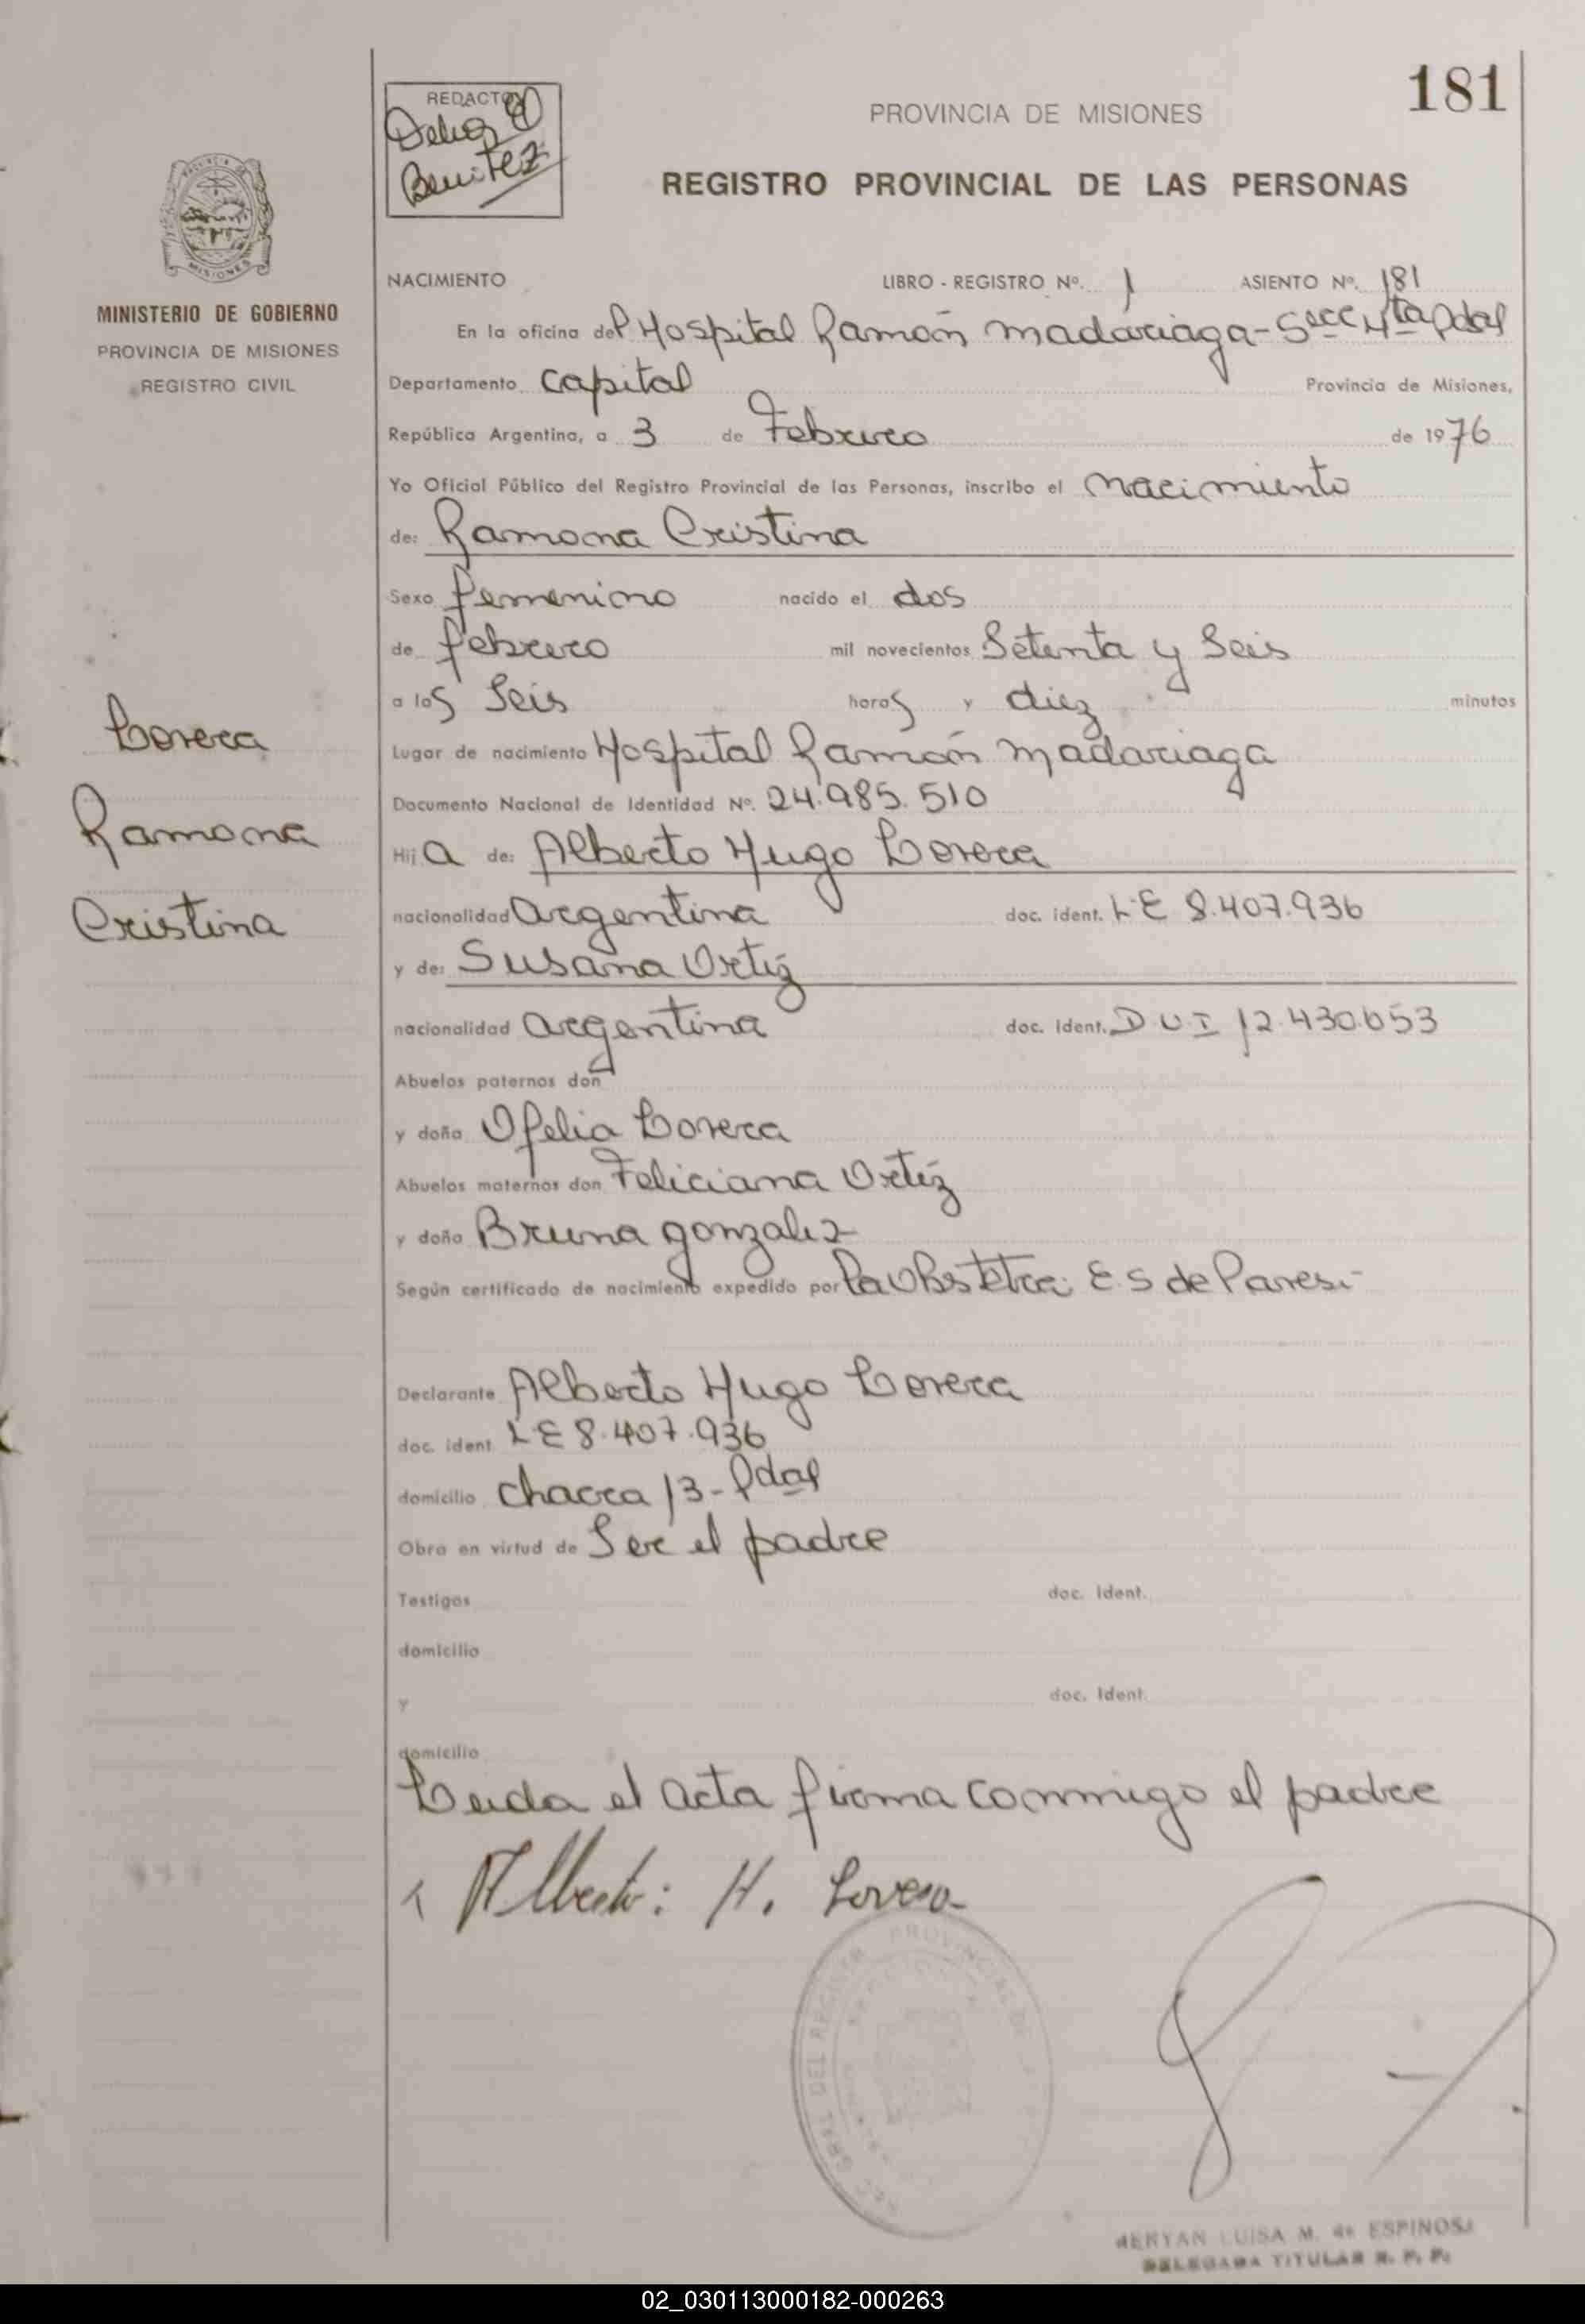 181
REDACTOR
Delia
Benitez
PROVINCIA DE MISIONES
REGISTRO PROVINCIAL DE LAS PERSONAS
MISIONES
MINISTERIO DE GOBIERNO
PROVINCIA DE MISIONES
REGISTRO CIVIL
NACIMIENTO LIBRO - REGISTRO Nº. 1 ASIENTO Nº. 181
En la oficina del Hospital Ramón Madariaga - Secc 4ta Pdas
Departamento Capital Provincia de Misiones,
República Argentina, a 3 de Febrero de 1976
Yo Oficial Público del Registro Provincial de las Personas, inscribo el nacimiento
de: Ramona Cristina
Sexo femenino nacido el dos
de febrero mil novecientos Setenta y Seis
a las Seis horas y diez minutos
Lugar de nacimiento Hospital Ramón Madariaga
Documento Nacional de Identidad Nº. 24.985.510
Hija de: Alberto Hugo Lovera
nacionalidad argentina doc. ident. L E 8.407.936
y de: Susana Ortiz
nacionalidad argentina doc. ident. D U I 12.430.653
Abuelos paternos don
y doña Ofelia Lovera
Abuelos maternos don Feliciana Ortiz
y doña Bruna gonzalez
Según certificado de nacimiento expedido por la Obstetra: E. S de Paresi
Declarante Alberto Hugo Lovera
doc. ident. L E 8.407.936
domicilio chacra 13 - Pdas
Obra en virtud de Ser el padre
Testigos doc. ident.
domicilio
y doc. ident.
domicilio
Leida el acta firma conmigo el padre
Alberto: H. Lovera
Lovera
Ramona
Cristina
LUISA M. de ESPINOSA
DELEGADA TITULAR R. P. P.
02_030113000182-000263